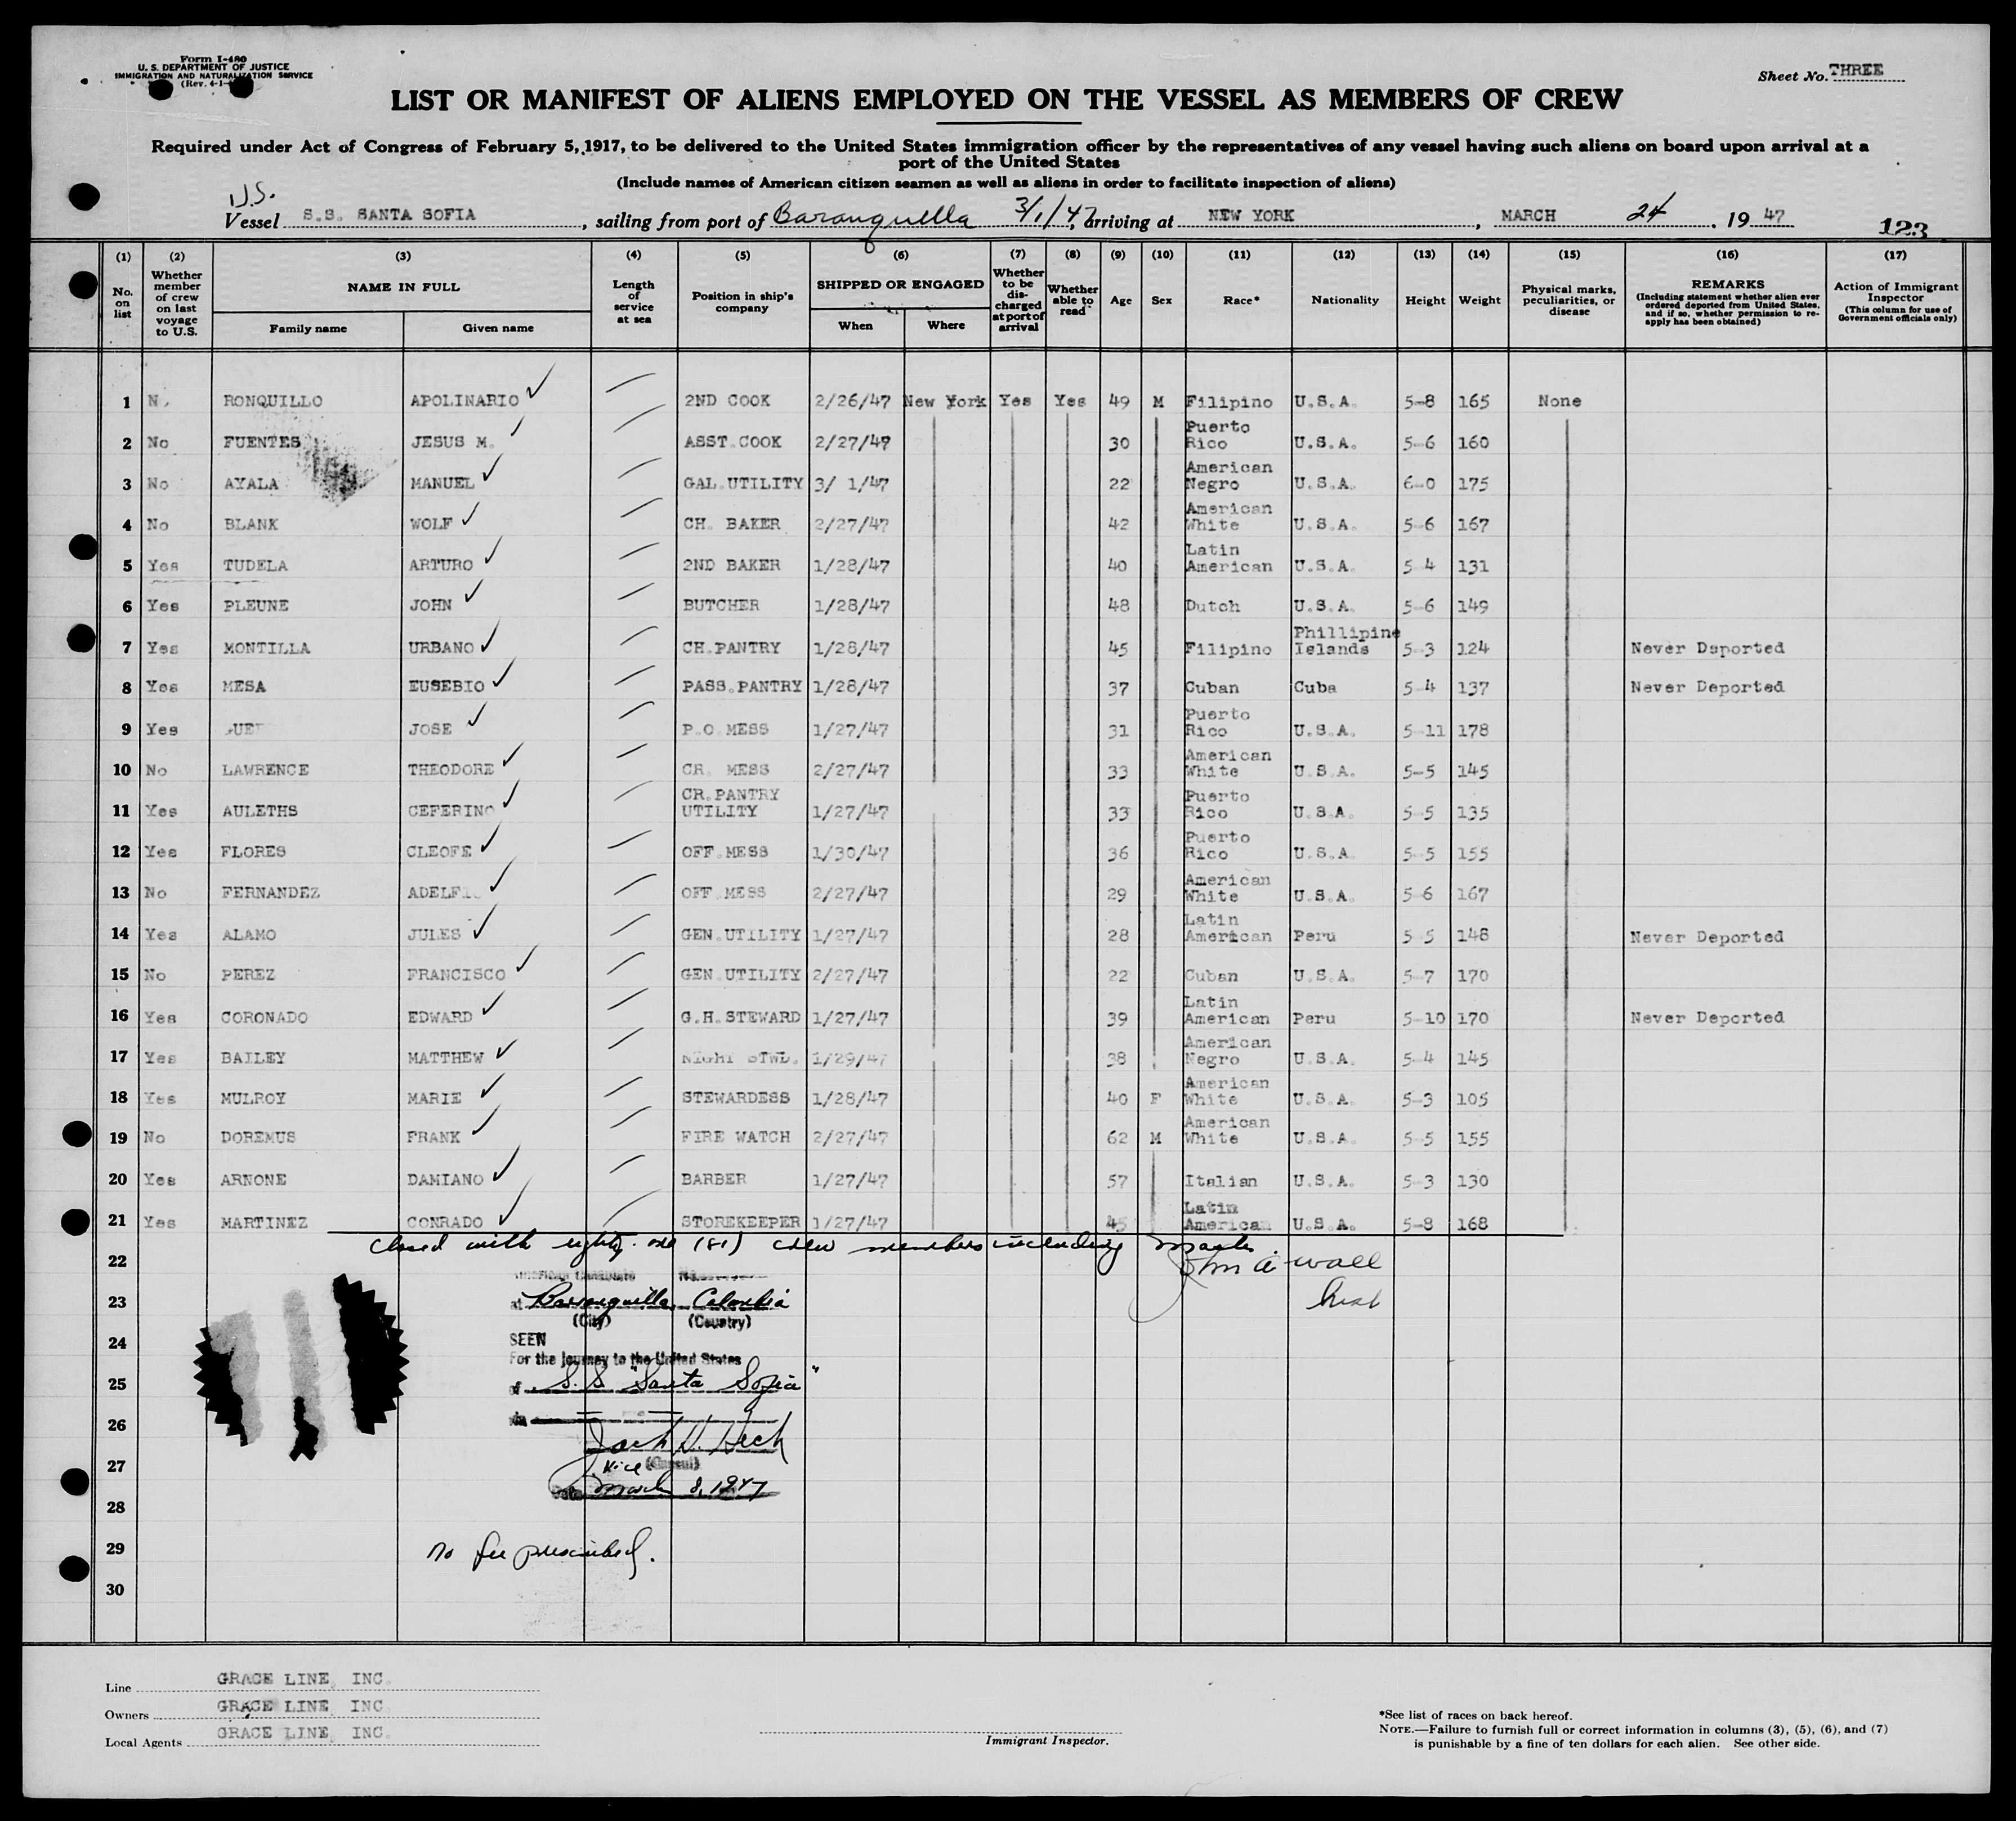 Form I-480
U. S. DEPARTMENT OF JUSTICE
IMMIGRATION AND NATURALIZATION SERVICE
(Rev. 4-1-
Sheet No. THREE
LIST OR MANIFEST OF ALIENS EMPLOYED ON THE VESSEL AS MEMBERS OF CREW
Required under Act of Congress of February 5, 1917, to be delivered to the United States immigration officer by the representatives of any vessel having such aliens on board upon arrival at a
port of the United States
(Include names of American citizen seamen as well as aliens in order to facilitate inspection of aliens)
U.S.
Vessel S.S. SANTA SOFIA, sailing from port of Baranquella 3/1/47, arriving at NEW YORK, MARCH 24, 1947
123
(1) No. on list (2) Whether member of crew on last voyage to U.S. (3) NAME IN FULL Family name Given name (4) Length of service at sea (5) Position in ship's company (6) SHIPPED OR ENGAGED When Where (7) Whether to be discharged at port of arrival (8) Whether able to read (9) Age (10) Sex (11) Race* (12) Nationality (13) Height (14) Weight (15) Physical marks, peculiarities, or disease (16) REMARKS (Including statement whether alien ever ordered deported from United States, and if so, whether permission to re-apply has been obtained) (17) Action of Immigrant Inspector (This column for use of Government officials only)
1 No RONQUILLO APOLINARIO 2ND COOK 2/26/47 New York Yes Yes 49 M Filipino U.S.A. 5-8 165 None
2 No FUENTES JESUS M. ASST.COOK 2/27/47 30 Puerto Rico U.S.A. 5-6 160
3 No AYALA MANUEL GAL.UTILITY 3/ 1/47 22 American Negro U.S.A. 6-0 175
4 No BLANK WOLF CH. BAKER 2/27/47 42 American White U.S.A. 5-6 167
5 Yes TUDELA ARTURO 2ND BAKER 1/28/47 40 Latin American U.S.A. 5-4 131
6 Yes PLEUNE JOHN BUTCHER 1/28/47 48 Dutch U.S.A. 5-6 149
7 Yes MONTILLA URBANO CH.PANTRY 1/28/47 45 Filipino Phillipine Islands 5-3 124 Never Deported
8 Yes MESA EUSEBIO PASS.PANTRY 1/28/47 37 Cuban Cuba 5-4 137 Never Deported
9 Yes JOSE P.O.MESS 1/27/47 31 Puerto Rico U.S.A. 5-11 178
10 No LAWRENCE THEODORE CR. MESS 2/27/47 33 American White U.S.A. 5-5 145
11 Yes AULETHS CEFERINO CR.PANTRY UTILITY 1/27/47 33 Puerto Rico U.S.A. 5-5 135
12 Yes FLORES CLEOFE OFF.MESS 1/30/47 36 Puerto Rico U.S.A. 5-5 155
13 No FERNANDEZ OFF.MESS 2/27/47 29 American White U.S.A. 5-6 167
14 Yes ALAMO JULES GEN.UTILITY 1/27/47 28 Latin American Peru 5-5 148 Never Deported
15 No PEREZ FRANCISCO GEN.UTILITY 2/27/47 22 Cuban U.S.A. 5-7 170
16 Yes CORONADO EDWARD G.H.STEWARD 1/27/47 39 Latin American Peru 5-10 170 Never Deported
17 Yes BAILEY MATTHEW NIGHT STWD. 1/29/47 38 American Negro U.S.A. 5-4 145
18 Yes MULROY MARIE STEWARDESS 1/28/47 40 F American White U.S.A. 5-3 105
19 No DOREMUS FRANK FIRE WATCH 2/27/47 62 M American White U.S.A. 5-5 155
20 Yes ARNONE DAMIANO BARBER 1/27/47 57 Italian U.S.A. 5-3 130
21 Yes MARTINEZ CONRADO STOREKEEPER 1/27/47 45 Latin American U.S.A. 5-8 168
Closed with eighty-one (81) crew members including Master.
22
23 at Barranquilla, Colombia
(City) (Country)
24 SEEN
For the journey to the United States
25 of S.S "Santa Sofia"
26
Jack H.
27 Vice (Consul)
28 Date March 8, 1947
29 no fee prescribed.
30
Line GRACE LINE, INC.
Owners GRACE LINE, INC
Local Agents GRACE LINE, INC.
Immigrant Inspector.
*See list of races on back hereof.
NOTE.—Failure to furnish full or correct information in columns (3), (5), (6), and (7)
is punishable by a fine of ten dollars for each alien. See other side.